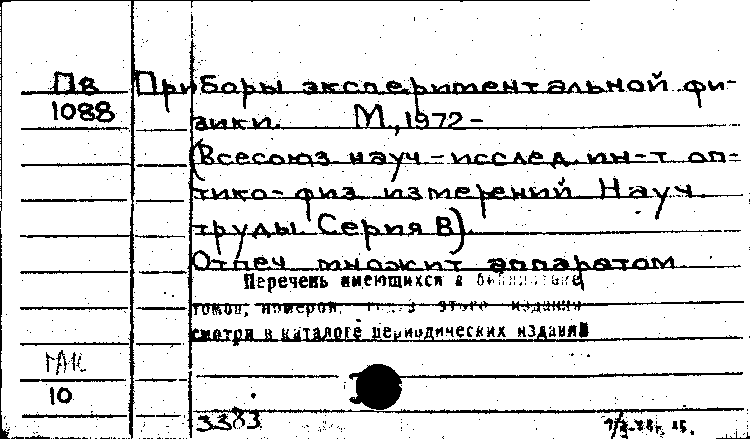 Пв Приборы экспериментальной фи-
1088 зики. М., 1972 -
(Всесоюз науч-исслед. ин-т оп-
тико-физ измерений Науч.
труды. Серия В).
Отпеч. множит аппаратом
Перечень имеющихся в библиотеке
томов, номеров, этого издания
смотри в каталоге периодических изданий
10
3383